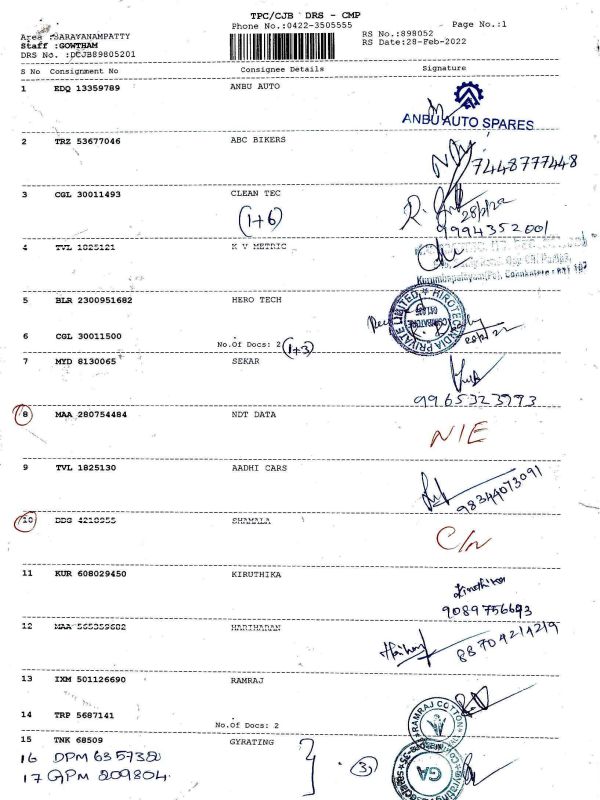 TPC/CJB DRS - CMP
Phone No.:0422-3505555 Page No.:1
Area :SARAVANAMPATTY RS No.:898052
Staff :GOWTHAM RS Date:28-Feb-2022
DRS No. :DCJB89805201
S No Consignment No Consignee Details Signature
1 EDQ 13359789 ANBU AUTO
ANBU AUTO SPARES
2 TRZ 53677046 ABC BIKERS
7448777448
3 CGL 30011493 CLEAN TEC
(1+6) 28/2/22
9994352001
4 TVL 1825121 K V METRIC
5 BLR 2300951682 HERO TECH
6 CGL 30011500
No.Of Docs: 2 (1+3)
7 MYD 8130065 SEKAR
9965323793
8 MAA 280754484 NDT DATA
N/E
9 TVL 1825130 AADHI CARS
98344073091
10 DDG SHAMALA
C/N
11 KUR 608029450 KIRUTHIKA
Kiruthika
9089756693
12 MAA 565359682 HARIHARAN
8870421 4219
13 IXM 501126690 RAMRAJ
RAMRAJ COTTON
14 TRP 5687141
No.Of Docs: 2
15 TNK 68509 GYRATING
16 DPM 635732 (3)
17 GPM 209804
GA